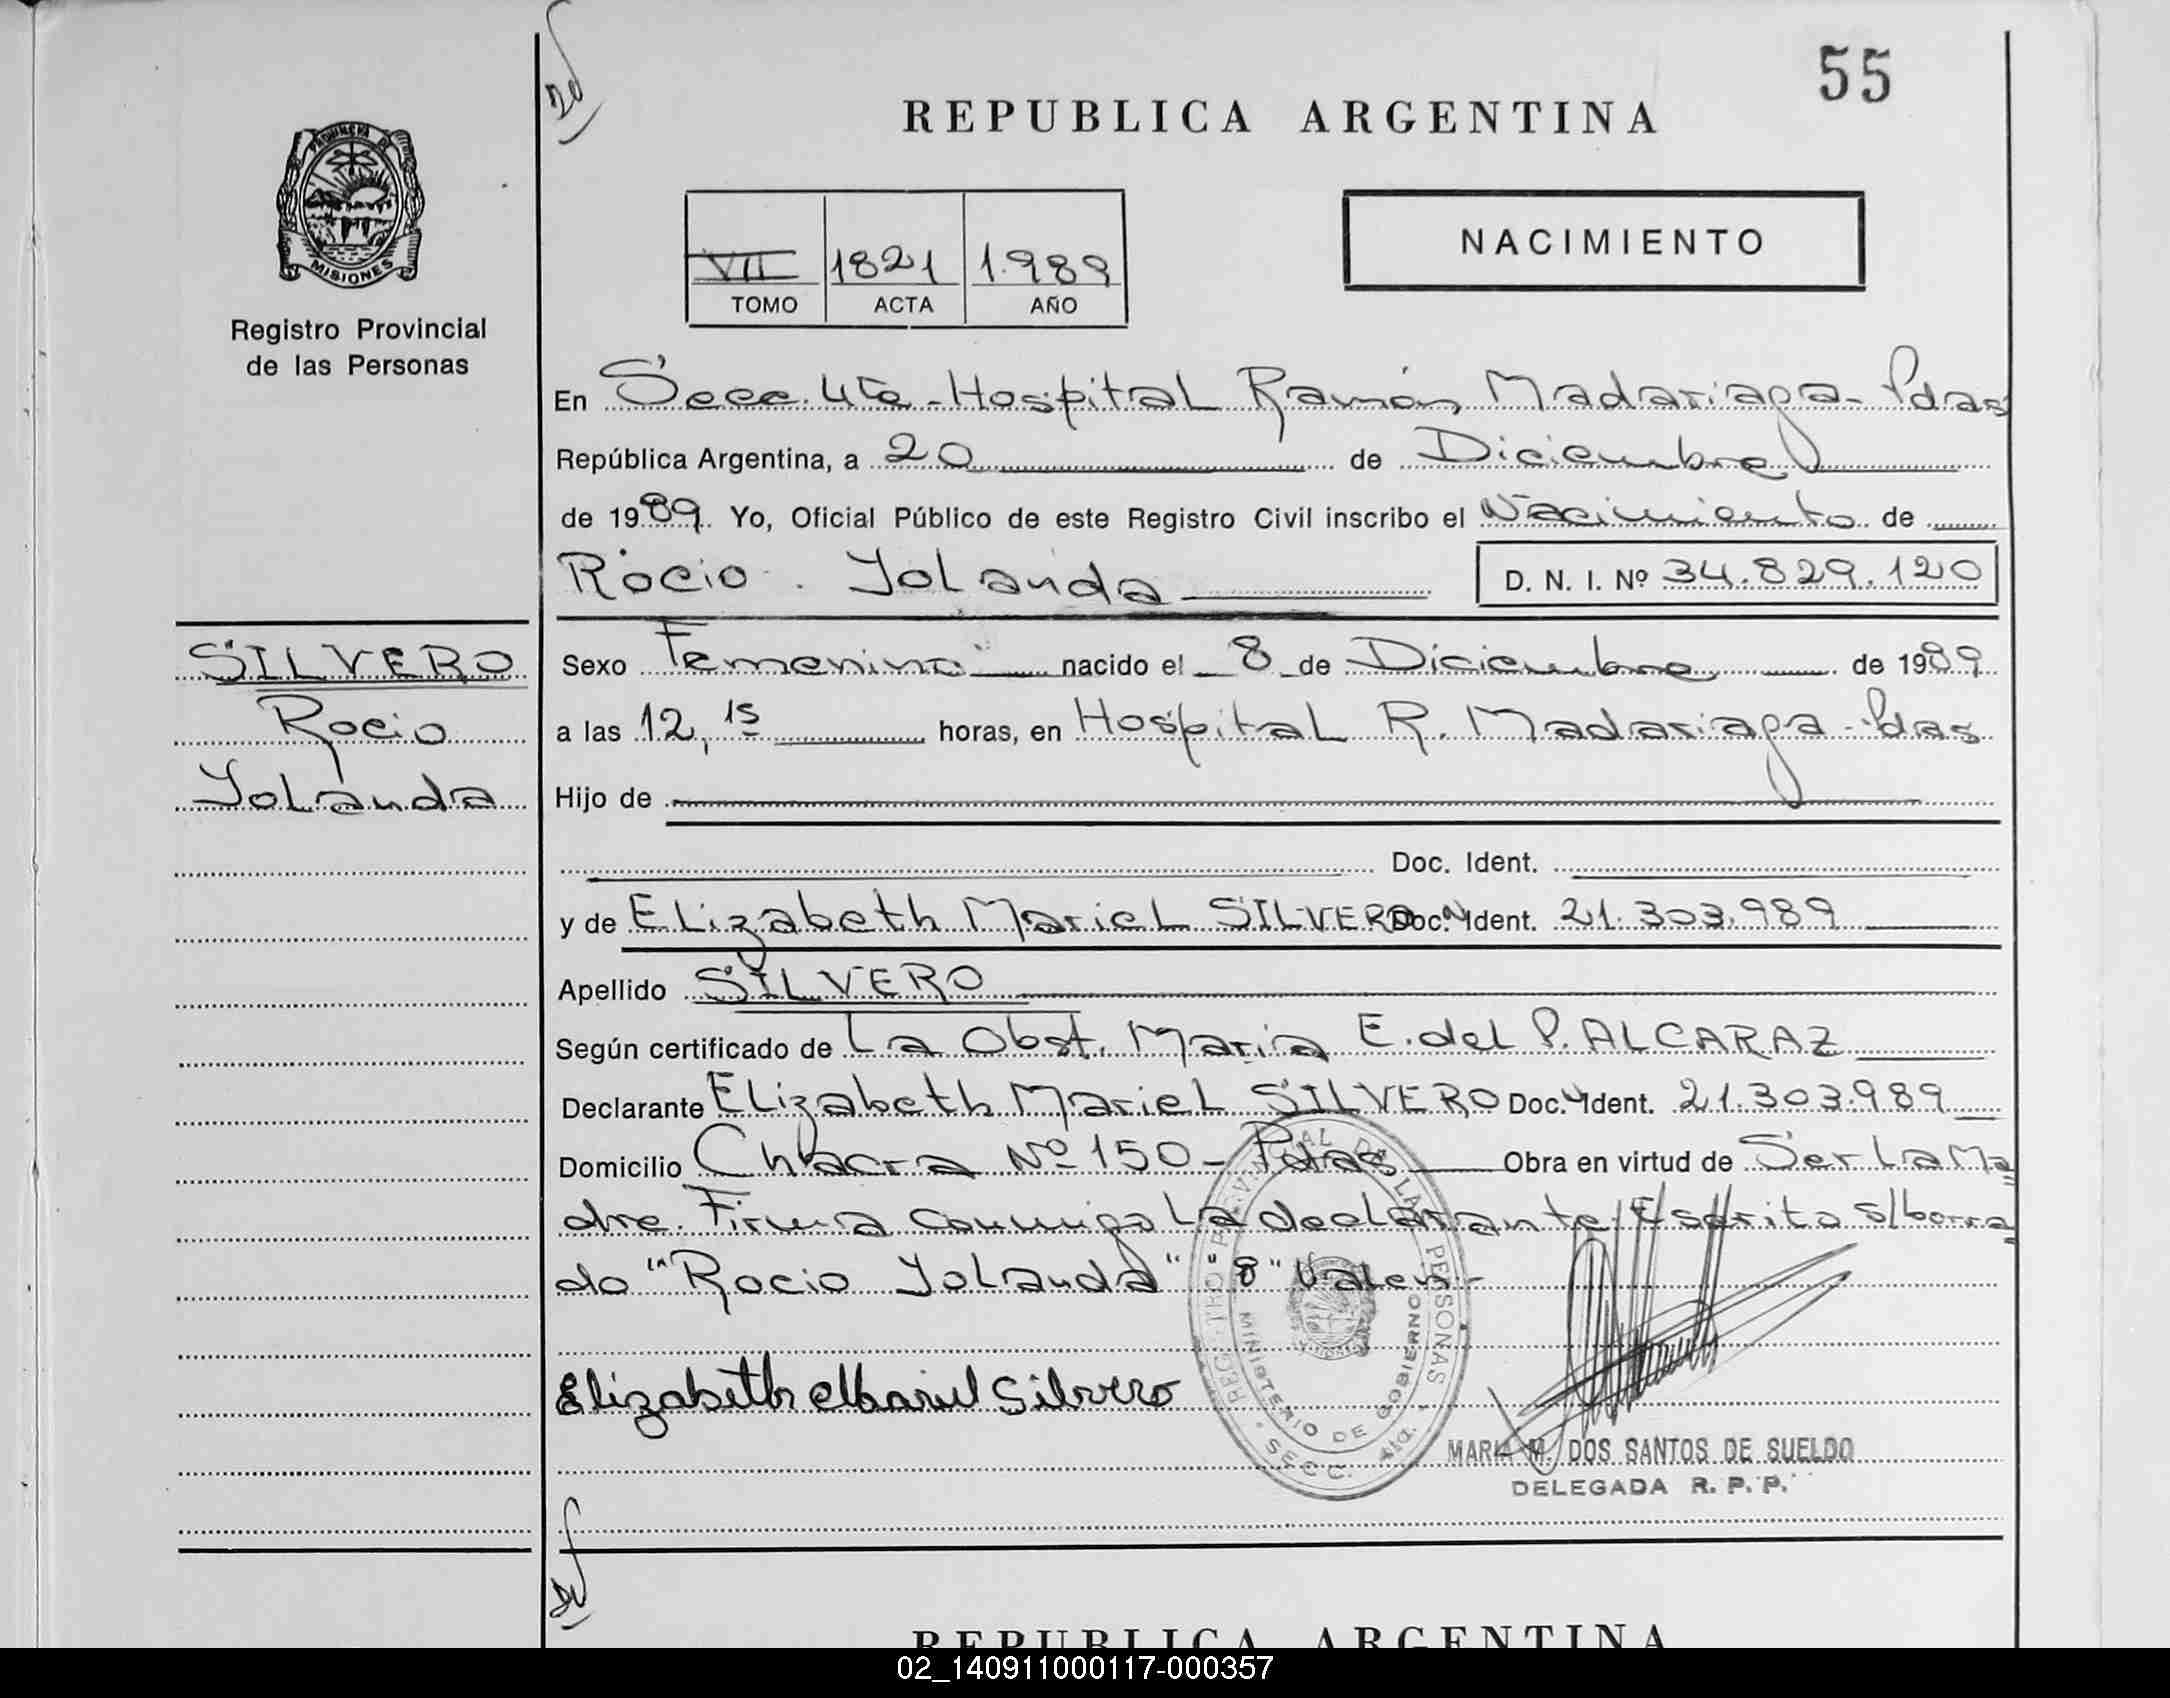 55
REPUBLICA ARGENTINA
PROVINCIA DE
MISIONES
Registro Provincial
de las Personas
VII 1821 1.989
TOMO ACTA AÑO
NACIMIENTO
En Secc. 4ta - Hospital Ramón Madariaga - Pdas
República Argentina, a 20 de Diciembre
de 1989. Yo, Oficial Público de este Registro Civil inscribo el Nacimiento de
Rocio Yolanda D. N. I. Nº 34.829.120
SILVERO
Rocio
Yolanda
Sexo Femenino nacido el 8 de Diciembre de 1989
a las 12,15 horas, en Hospital R. Madariaga - Pdas
Hijo de
Doc. Ident.
y de Elizabeth Mariel SILVERO Doc. Ident. 21.303.989
Apellido SILVERO
Según certificado de La Obst. Maria E. del P. ALCARAZ
Declarante Elizabeth Mariel SILVERO Doc. Ident. 21.303.989
Domicilio Chacra Nº 150 - Pdas Obra en virtud de Ser La Ma
dre. Firma conmigo La declarante/Escrito s/borra
do "Rocio Yolanda" "8" Valen -
Elizabeth Mariel Silvero
REG. TRO PROVINCIAL DE LAS PERSONAS
MINISTERIO DE GOBIERNO
SECC. 4ta.
MARIA M. DOS SANTOS DE SUELDO
DELEGADA R. P. P.
REPUBLICA ARGENTINA
02_140911000117-000357